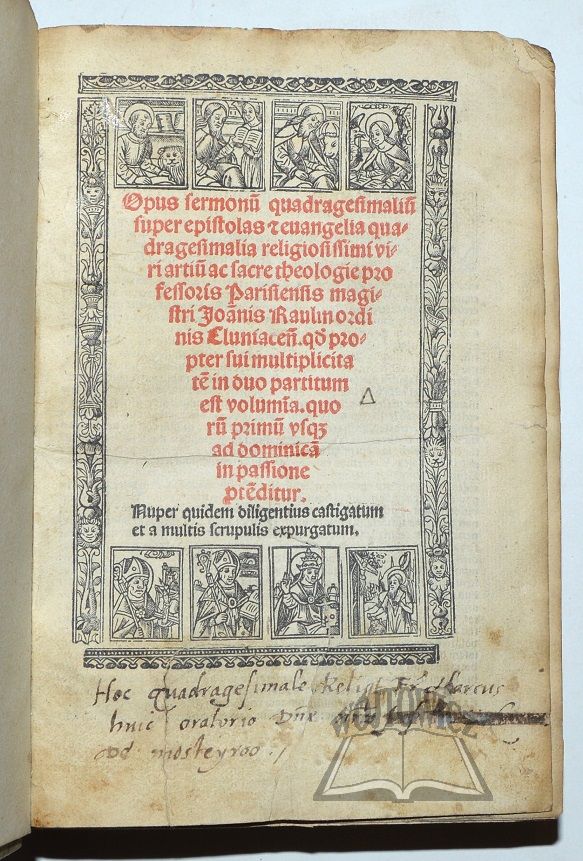 Opus sermonū quadragesimaliū
super epistolas ⁊ euangelia qua-
dragesimalia religiosissimi vi-
ri artiū ac sacre theologie pro
fessoris Parisiensis magi-
stri Joānis Raulin ordi
nis Cluniaceñ. qđ pro-
pter sui multiplicita
tē in duo partitum
est volumīa. quo
rū primū vsqꝫ
ad dominicā
in passione
ptēditur.
Nuper quidem diligentius castigatum
et a multis scrupulis expurgatum.
Hoc quadragesimale
huic oratorio Dñe
de mosteyroo
wójtowicz